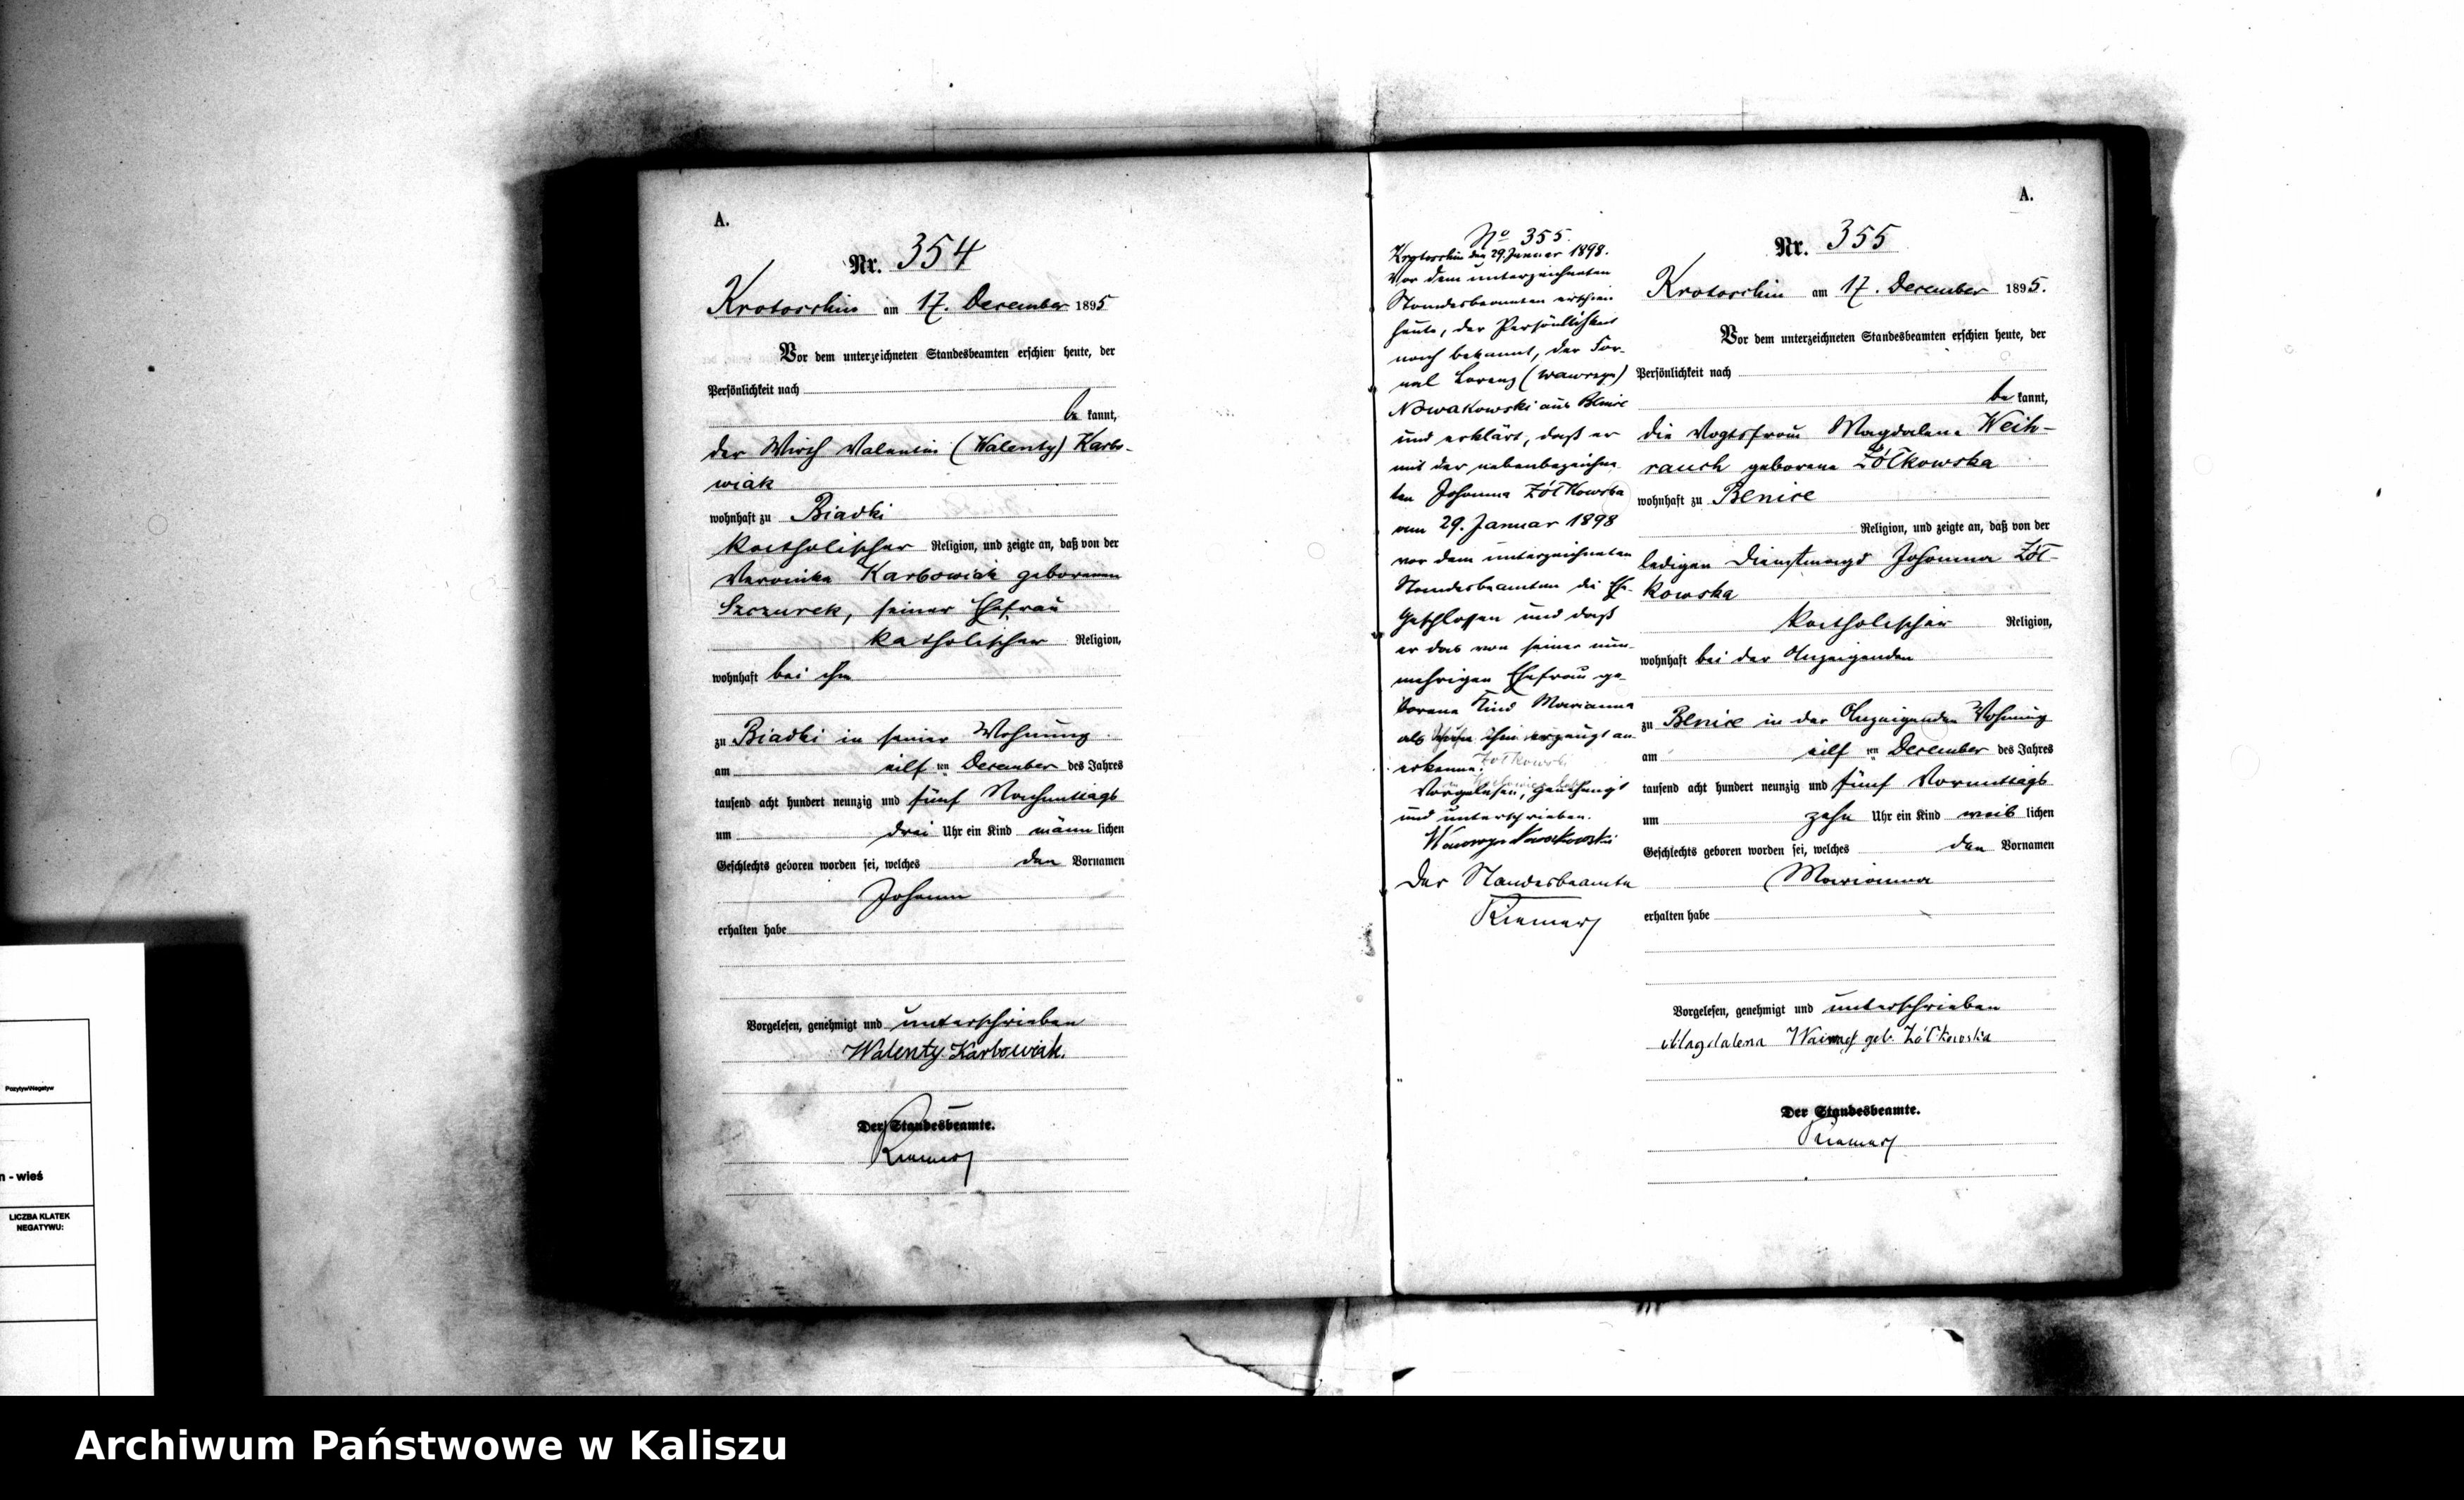 A.
Nr. 354
Krotoschin am 17. December 1895
Vor dem unterzeichneten Standesbeamten erschien heute, der
Persönlichkeit nach
be kannt,
der Wirth Valentin (Walenty) Karbo-
wiak
wohnhaft zu Biadki
katholischer Religion, und zeigte an, daß von der
Veronika Karbowiak geborenen
Szczurek, seiner Ehefrau
katholischer Religion,
wohnhaft bei ihm
zu Biadki in seiner Wohnung
am eilf ten December des Jahres
tausend acht hundert neunzig und fünf Nachmittags
um drei Uhr ein Kind männ lichen
Geschlechts geboren worden sei, welches den Vornamen
Johann
erhalten habe
Vorgelesen, genehmigt und unterschrieben
Walenty Karbowiak.
Der Standesbeamte.
Riemer
No 355.
Krotoschin den 29. Januar 1898.
Vor dem unterzeichneten
Standesbeamten erschien
heute, der Persönlichkeit
nach bekannt, der For-
nal Lorenz (Wawrzyn)
Nowakowski aus Benice
und erklärt, daß er
mit der nebenbezeichne
ten Johanna Żółkowska
am 29. Januar 1898
vor dem unterzeichneten
Standesbeamten die Ehe
geschlossen und daß
er das von seiner nun-
mehrigen Ehefrau ge-
borene Kind Marianna
als ihm erzeugt an-
erkenne.
Vorgelesen, genehmigt
und unterschrieben.
Wawrzyn Nowakowski
Der Standesbeamte
Riemer
A.
Nr. 355
Krotoschin am 17. December 1895.
Vor dem unterzeichneten Standesbeamten erschien heute, der
Persönlichkeit nach
be kannt,
die Vogtsfrau Magdalena Weih-
rauch geborene Żółkowska
wohnhaft zu Benice
Religion, und zeigte an, daß von der
ledigen Dienstmagd Johanna Żół-
kowska
katholischer Religion,
wohnhaft bei der Anzeigenden
zu Benice in der Anzeigenden Wohnung
am eilf ten December des Jahres
tausend acht hundert neunzig und fünf Vormittags
um zehn Uhr ein Kind weib lichen
Geschlechts geboren worden sei, welches den Vornamen
Marianna
erhalten habe
Vorgelesen, genehmigt und unterschrieben
Magdalena geb. Żółkowska
Der Standesbeamte.
Riemer
Pozytyw\Negatyw
n - wieś
LICZBA KLATEK
NEGATYWU:
Archiwum Państwowe w Kaliszu